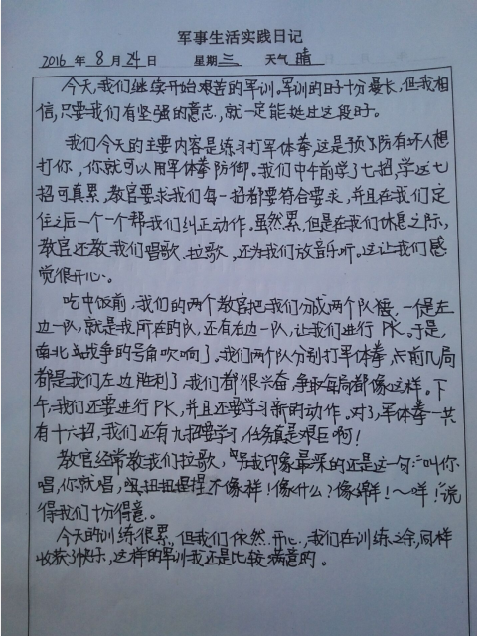 军事生活实践日记
2016 年 8 月 24 日 星期 三 天气 晴
今天,我们继续开始艰苦的军训。军训的日子十分漫长,但我相
信,只要我们有坚强的意志,就一定能挺过这段日子。
我们今天的主要内容是练习打军体拳,这是预了防有坏人想
打你,你就可以用军体拳防御。我们中午前学了七招,学这七
招可真累,教官要求我们每一招都要符合要求,并且在我们定
住之后一个一个帮我们纠正动作。虽然累,但是在我们休息之际,
教官还教我们唱歌、拉歌,还为我们放音乐听。这让我们感
觉很开心。
吃中饭前,我们的两个教官把我们分成两个队,一是左
边一队,就是我所在的队,还有右边一队,让我们进行PK。于是,
南北战争的号角吹响了。我们两个队分别打军体拳,前几局
都是我们左边胜利了,我们都很兴奋,争取每局都像这样。下
午,我们还要进行PK,并且还要学习新的动作。对了,军体拳一共
有十六招,我们还有九招要学习,任务真是艰巨啊!
教官经常教我们拉歌,令我印象最深的还是这一句:“叫你
唱,你就唱,扭扭捏捏不像样!像什么?像绵羊!~咩!”说
得我们十分得意。
今天的训练很累,但我们依然开心,我们在训练之余,同样
收获了快乐,这样的军训我还是比较满意的。